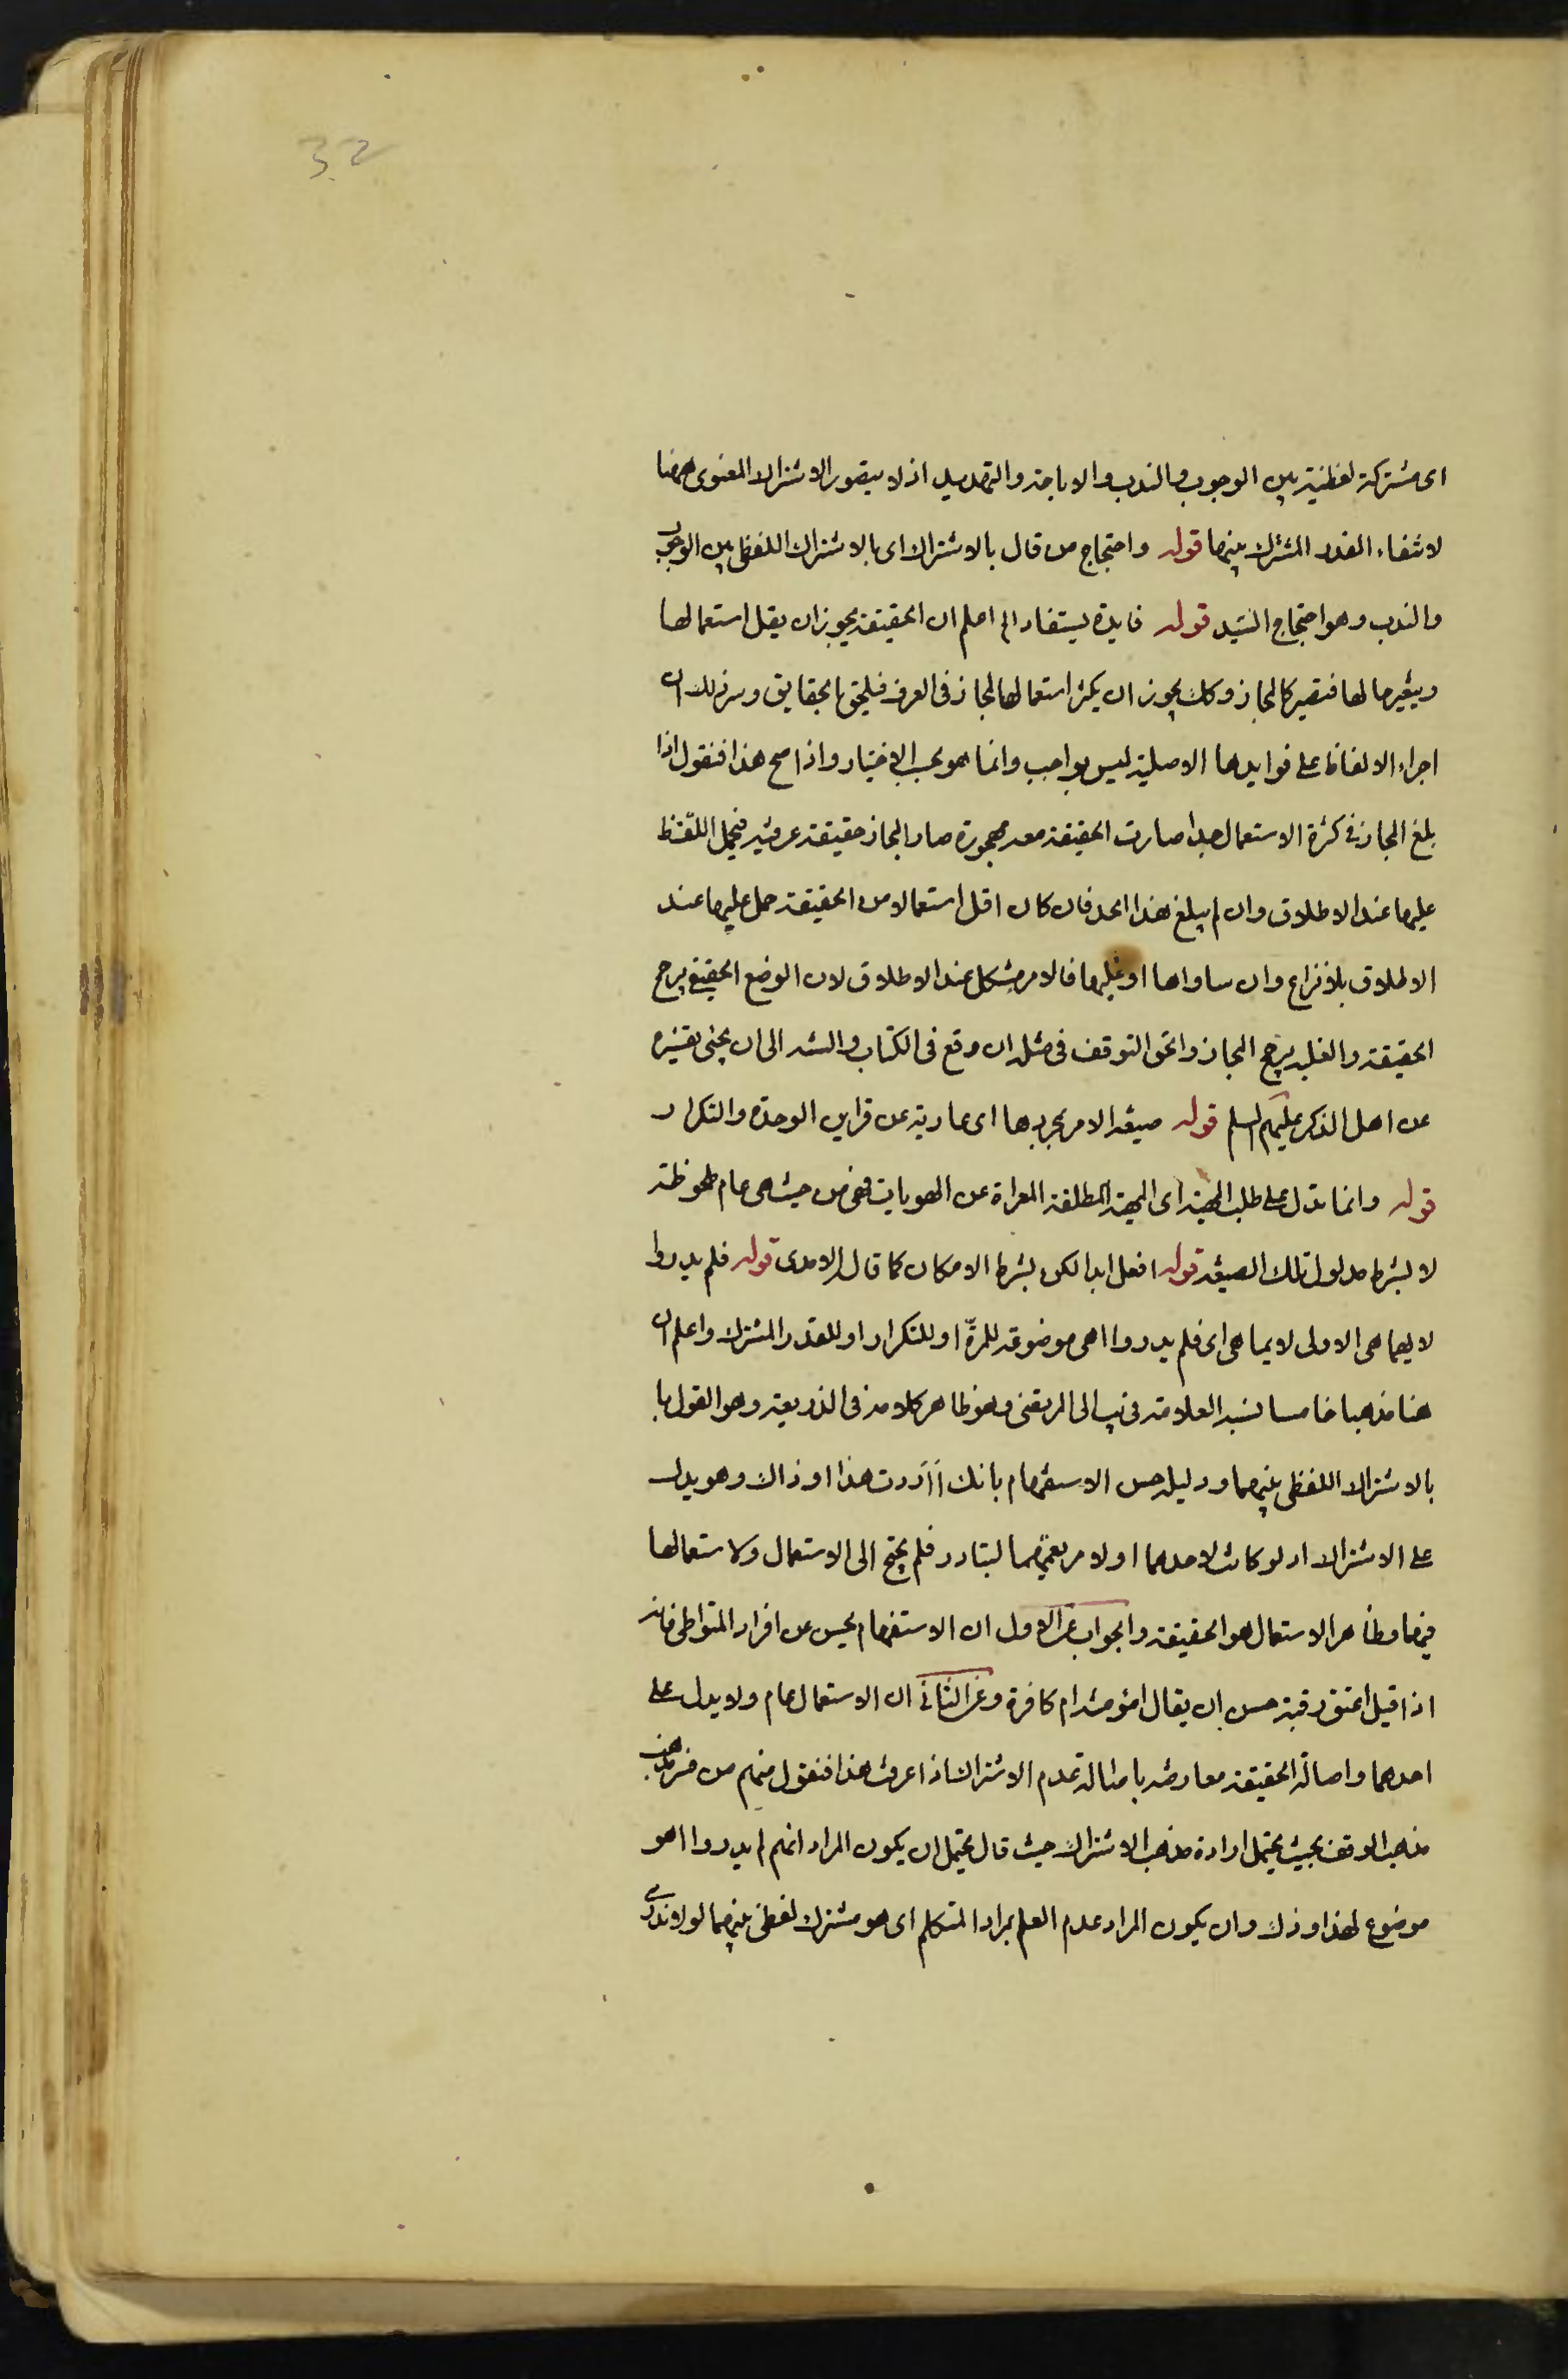 32
اى مشتركة لفظية بين الوجوب والندب والاباحة والتهديد اذ لا يتصور الاشتراك المعنوى ههنا
لانتفاء القدر المشترك بينها قوله واحتجاج من قال بالاشتراك اى بالاشتراك اللفظى بين الوجوب
والندب وهو احتجاج السّيد قوله فايدة يستفاد الخ اعلم ان الحقيقة يجوز ان يقل استعمالها
ويتغير حالها فتصير كالمجاز وكك يجوز ان يكثر استعمالها المجاز فى العرف فيلحق بالحقايق ومن ذلك ان
اجراء الالفاظ على فوايدها الاصلية ليس بواجب وانما هو بحسب الاختيار واذا صح هذا فنقول اذا
بلغ المجاز فى كثرة الاستعمال حدا صارت الحقيقة معه مهجورة صار المجاز حقيقة عرفية فيحمل اللّفظ
عليها عند الاطلاق وان لم يبلغ هذا الحد فان كان اقل استعمالا من الحقيقة حمل عليها عند
الاطلاق بلا نزاع وان ساواها او غلبها فالامر مشكل عند الاطلاق لان الوضع الحقيقى يرجح
الحقيقة والغلبة يرجح المجاز والحق التوقف فى مثله ان وقع فى الكتاب والسنة الى ان يجئ تفسيره
عن اهل الذكر عليهم السلم قوله صيغة الامر بمجردها اى عارية عن قراين الوحدة والتكرار
قوله وانما تدل على طلب المهية اى المهية المطلقة المعراة عن الهويات فهى من حيث هى عام ملحوظة
لا بشرط مدلول تلك الصيغة قوله افعل ابدا لكن بشرط الامكان كما قال الامدى قوله فلم يدروا
لايهما هى الاولى لايما هى اى فلم يدروا اهى موضوعة للمرّة او للتكرار او للقدر المشترك واعلم ان
هنا مذهبا خامسا نسبه العلامة فى يب الى المرتضى وهو ظاهر كلامه فى الذريعة وهو القول با
بالاشتراك اللفظى بينهما ودليله حسن الاستفهام بانك أأردت هذا او ذاك وهو يدل
على الاشتراك اذ لو كانت لاحدهما او لامر يعمهما لتبادر فلم يحتج الى الاستعمال ولاستعمالها
فيهما وظاهر الاستعمال هو الحقيقة والجواب عن الاول ان الاستفهام يحسن عن افراد المتواطى فانه
اذا قيل اعتق رقبة حسن ان يقال امؤمنة ام كافرة وعن الثانى ان الاستعمال عام ولا يدل على
احدهما واصالة الحقيقة معارضة باصالة عدم الاشتراك اذا عرفت هذا فنقول منهم من فسر هذ
مذهب الوقف بحيث يحتمل ارادة مذهب الاشتراك حيث قال يحتمل ان يكون المراد انهم لم يدروا اهو
موضوع لهذا وذلك وان يكون المراد عدم العلم بمراد المتكلم اى هو مشترك لفظى بينهما لو لا ندرى